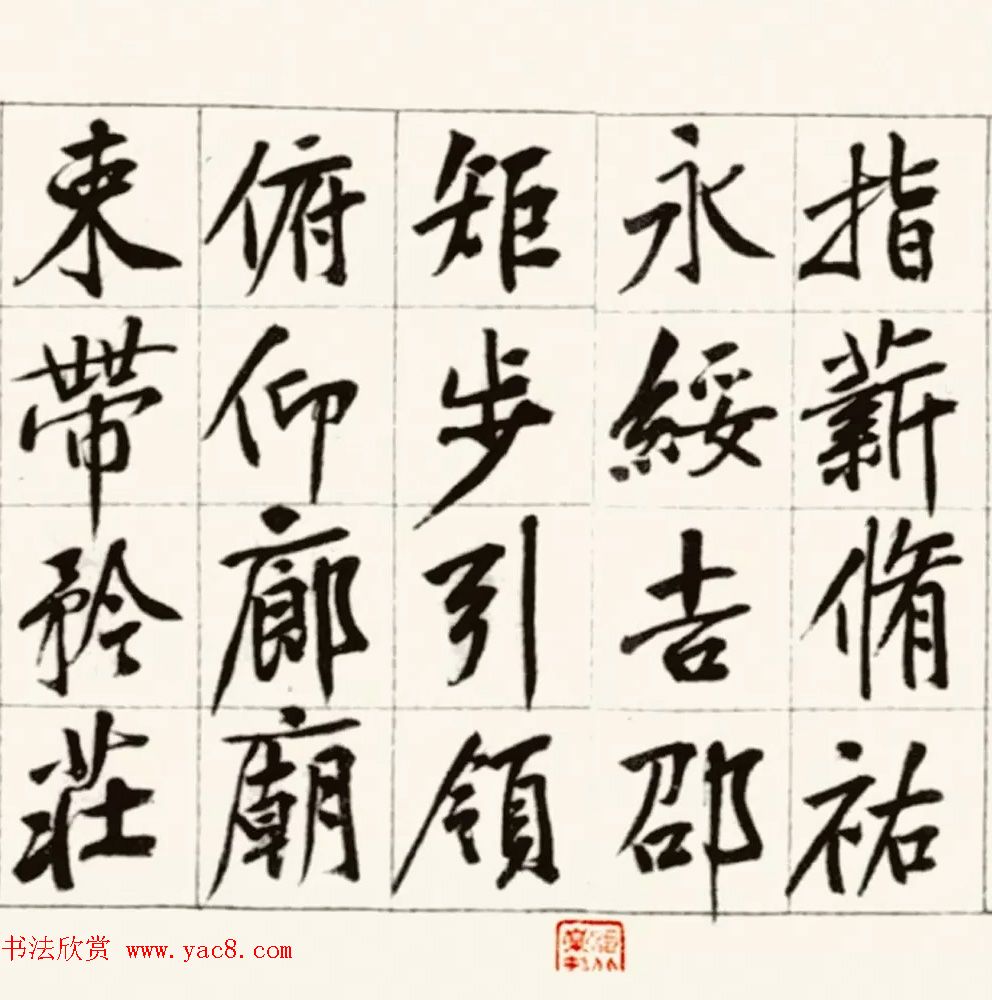 指薪脩祐
永綏吉邵
矩步引領
俯仰廊廟
束帶矜莊
书法欣赏 www.yac8.com